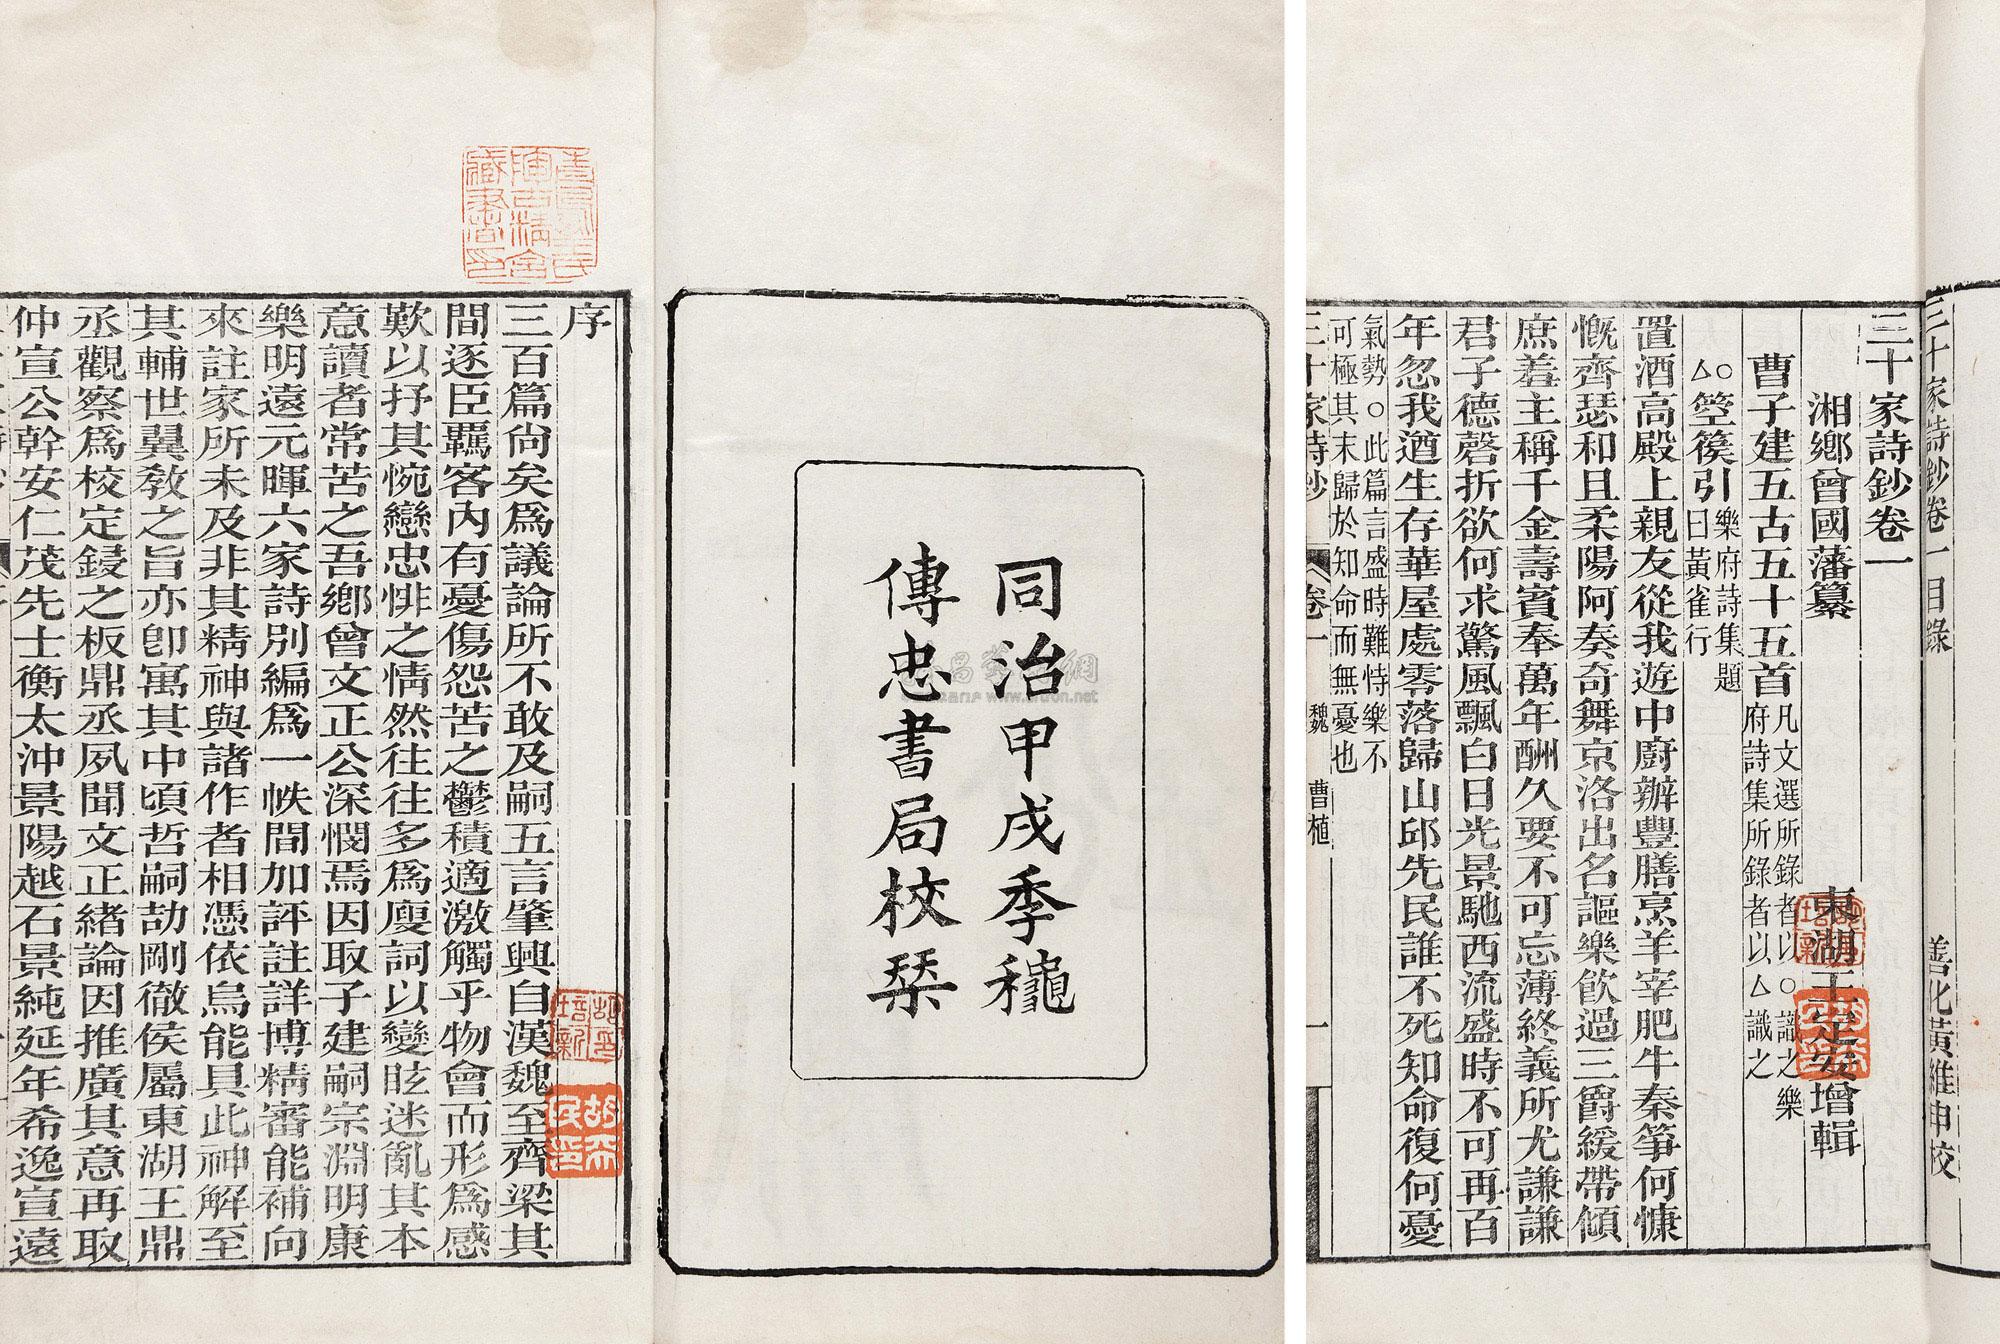 三十家詩鈔卷一目錄
善化黃維申校
三十家詩鈔卷一
湘鄉曾國藩纂
東湖王定安增輯
曹子建五古五十五首
凡文選所錄者以○識之樂
府詩集所錄者以△識之
○△箜篌引
樂府詩集題
曰黃雀行
置酒高殿上親友從我遊中廚辦豐膳烹羊宰肥牛秦箏何慷
慨齊瑟和且柔陽阿奏奇舞京洛出名謳樂飲過三爵緩帶傾
庶羞主稱千金壽賓奉萬年酬久要不可忘薄終義所尤謙謙
君子德磬折欲何求驚風飄白日光景馳西流盛時不可再百
年忽我遒生存華屋處零落歸山邱先民誰不死知命復何憂
氣勢○此篇言盛時難恃樂不
可極其末歸於知命而無憂也
三十家詩鈔
卷一
魏
曹植
一
同治甲戌季龝
傳忠書局校栞
序
三百篇尙矣爲議論所不敢及嗣五言肇興自漢魏至齊梁其
間逐臣羈客內有憂傷怨苦之鬱積適激觸乎物會而形爲感
歎以抒其惋戀忠悱之情然往往多爲廋詞以變眩迷亂其本
意讀者常苦之吾鄉曾文正公深憫焉因取子建嗣宗淵明康
樂明遠元暉六家詩別編爲一帙間加評註詳博精審能補向
來註家所未及非其精神與諸作者相憑依烏能具此神解至
其輔世翼敎之旨亦卽寓其中頃哲嗣劼剛徹侯屬東湖王鼎
丞觀察爲校定鋟之板鼎丞夙聞文正緒論因推廣其意再取
仲宣公幹安仁茂先士衡太沖景陽越石景純延年希逸宣遠
胡氏印
昌藝術網
www.artron.net